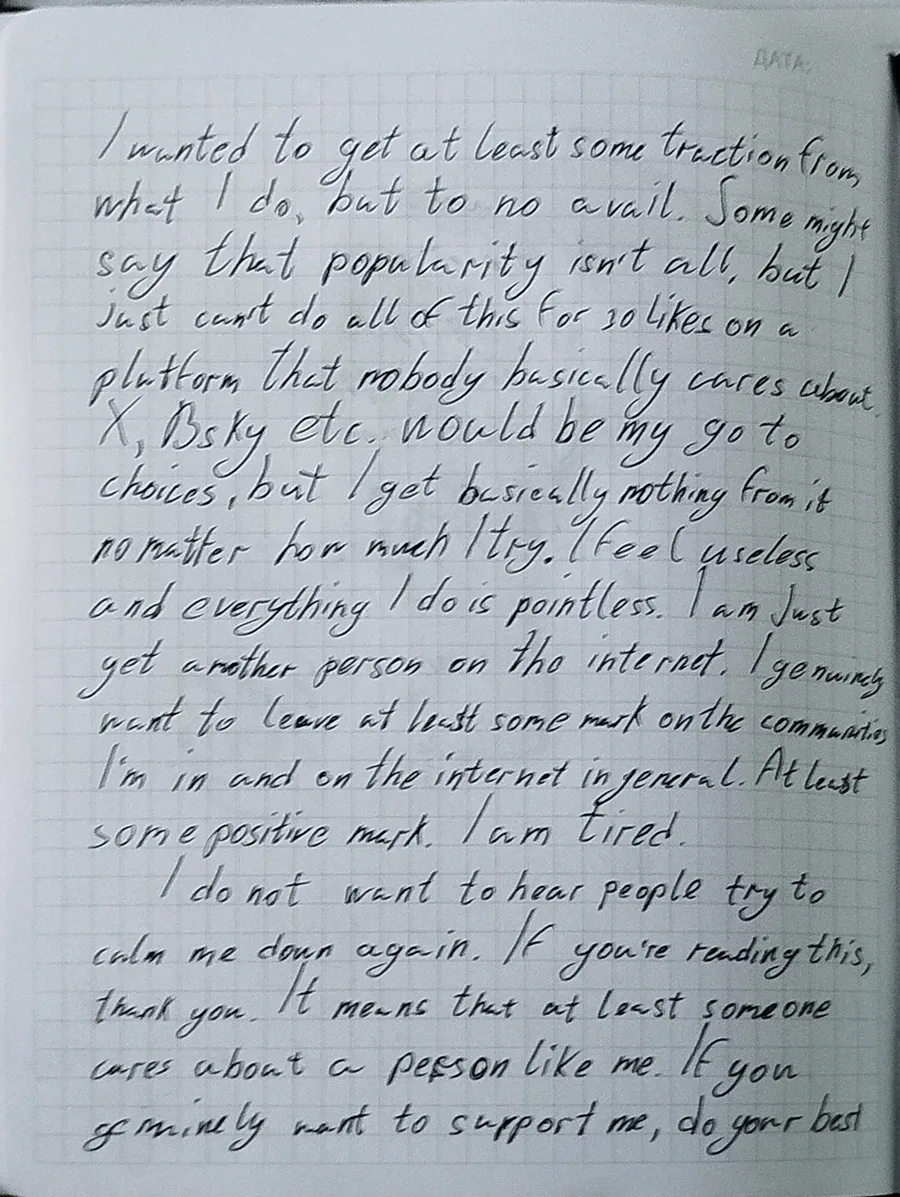 ДАТА:
I wanted to get at least some traction from
what I do, but to no avail. Some might
say that popularity isn't all, but I
just can't do all of this for 30 likes on a
platform that nobody basically cares about.
X, Bsky etc. would be my go to
choices, but I get basically nothing from it
no matter how much I try. I feel useless
and everything I do is pointless. I am just
yet another person on the internet. I genuinely
want to leave at least some mark on the communities
I'm in and on the internet in general. At least
some positive mark. I am tired.
I do not want to hear people try to
calm me down again. If you're reading this,
thank you. It means that at least someone
cares about a person like me. If you
genuinely want to support me, do your best